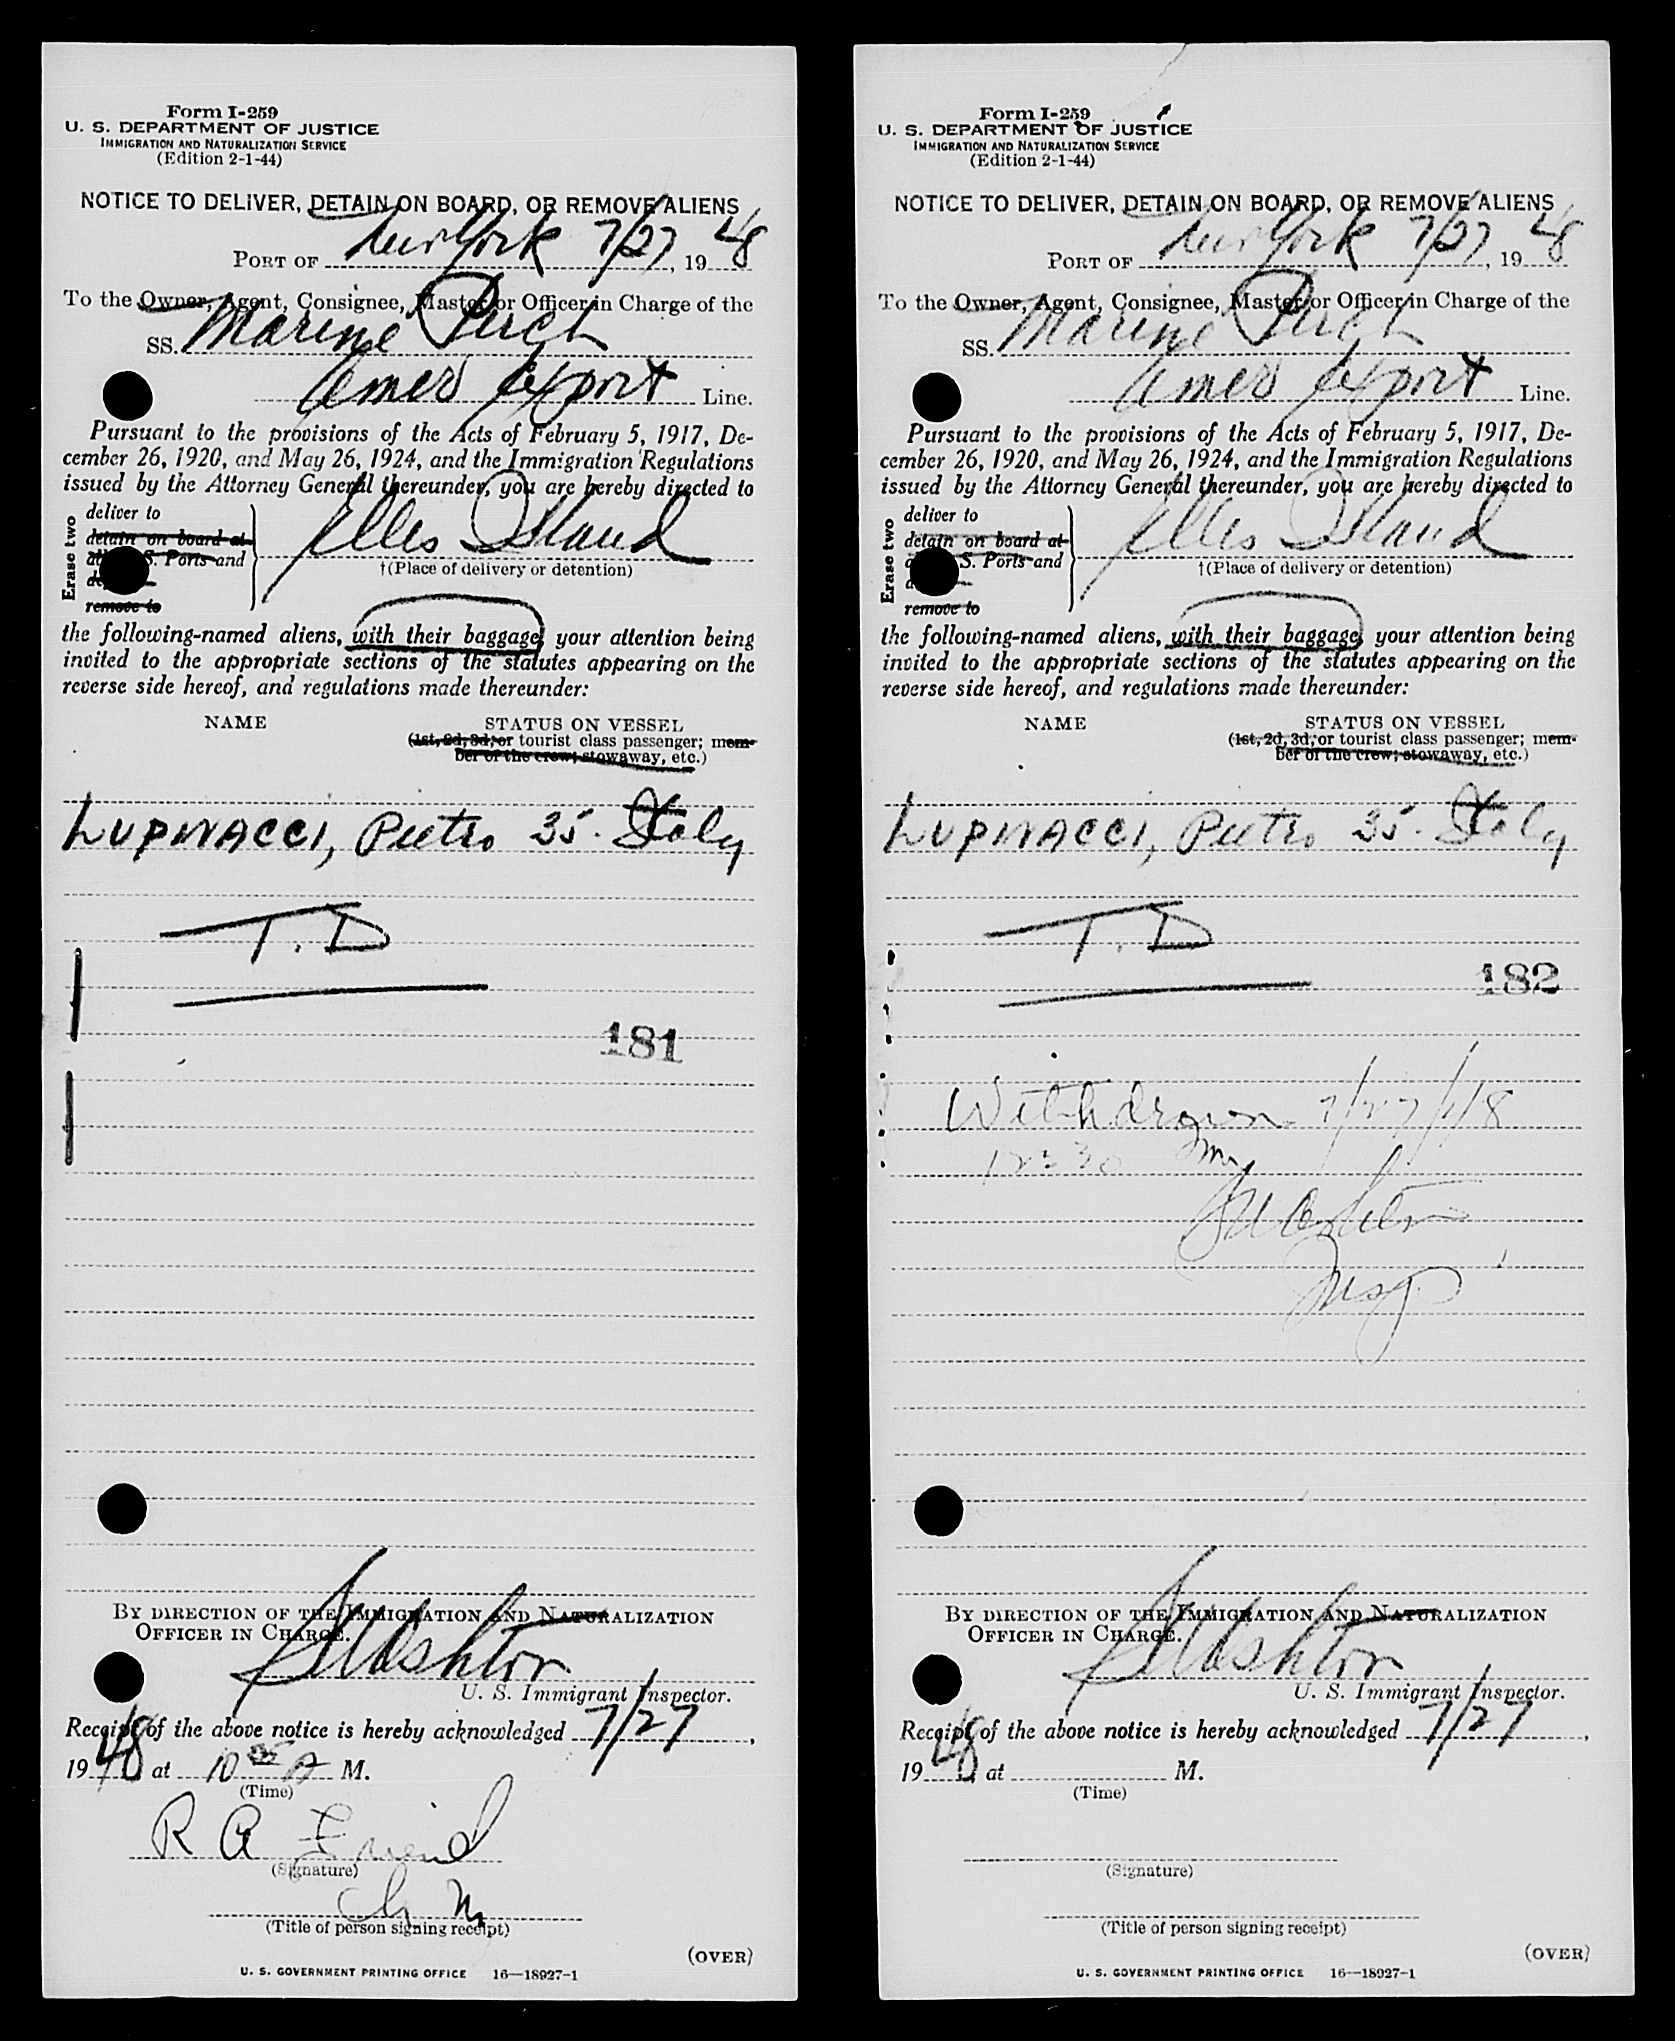 Form I-259
U. S. DEPARTMENT OF JUSTICE
IMMIGRATION AND NATURALIZATION SERVICE
(Edition 2-1-44)
NOTICE TO DELIVER, DETAIN ON BOARD, OR REMOVE ALIENS
PORT OF New York 7/27, 1948
To the Owner, Agent, Consignee, Master or Officer in Charge of the
SS. Marine Perch
Amer Export Line.
Pursuant to the provisions of the Acts of February 5, 1917, De-
cember 26, 1920, and May 26, 1924, and the Immigration Regulations
issued by the Attorney General thereunder, you are hereby directed to
Erase two
deliver to
detain on board at
S. Ports and
remove to
Ellis Island
†(Place of delivery or detention)
the following-named aliens, with their baggage, your attention being
invited to the appropriate sections of the statutes appearing on the
reverse side hereof, and regulations made thereunder:
NAME STATUS ON VESSEL
(1st, 2d, 3d, or tourist class passenger; mem-
ber of the crew; stowaway, etc.)
LUPINACCI, Pietro 35. Italy
T.D
181
BY DIRECTION OF THE IMMIGRATION AND NATURALIZATION
OFFICER IN CHARGE.
Ashton
U. S. Immigrant Inspector.
Receipt of the above notice is hereby acknowledged 7/27,
1948 at 10 A M.
(Time)
R A Friend
(Signature)
(Title of person signing receipt)
(OVER)
U. S. GOVERNMENT PRINTING OFFICE 16—18927-1
Form I-259
U. S. DEPARTMENT OF JUSTICE
IMMIGRATION AND NATURALIZATION SERVICE
(Edition 2-1-44)
NOTICE TO DELIVER, DETAIN ON BOARD, OR REMOVE ALIENS
PORT OF New York 7/27, 1948
To the Owner, Agent, Consignee, Master or Officer in Charge of the
SS. Marine Perch
Amer Export Line.
Pursuant to the provisions of the Acts of February 5, 1917, De-
cember 26, 1920, and May 26, 1924, and the Immigration Regulations
issued by the Attorney General thereunder, you are hereby directed to
Erase two
deliver to
detain on board at
S. Ports and
remove to
Ellis Island
†(Place of delivery or detention)
the following-named aliens, with their baggage, your attention being
invited to the appropriate sections of the statutes appearing on the
reverse side hereof, and regulations made thereunder:
NAME STATUS ON VESSEL
(1st, 2d, 3d, or tourist class passenger; mem-
ber of the crew; stowaway, etc.)
LUPINACCI, Pietro 35. Italy
T.D
182
Withdrawn 7/27/48
12:30
Ashton
Insp.
BY DIRECTION OF THE IMMIGRATION AND NATURALIZATION
OFFICER IN CHARGE.
Ashton
U. S. Immigrant Inspector.
Receipt of the above notice is hereby acknowledged 7/27,
1948, at M.
(Time)
(Signature)
(Title of person signing receipt)
(OVER)
U. S. GOVERNMENT PRINTING OFFICE 16—18927-1